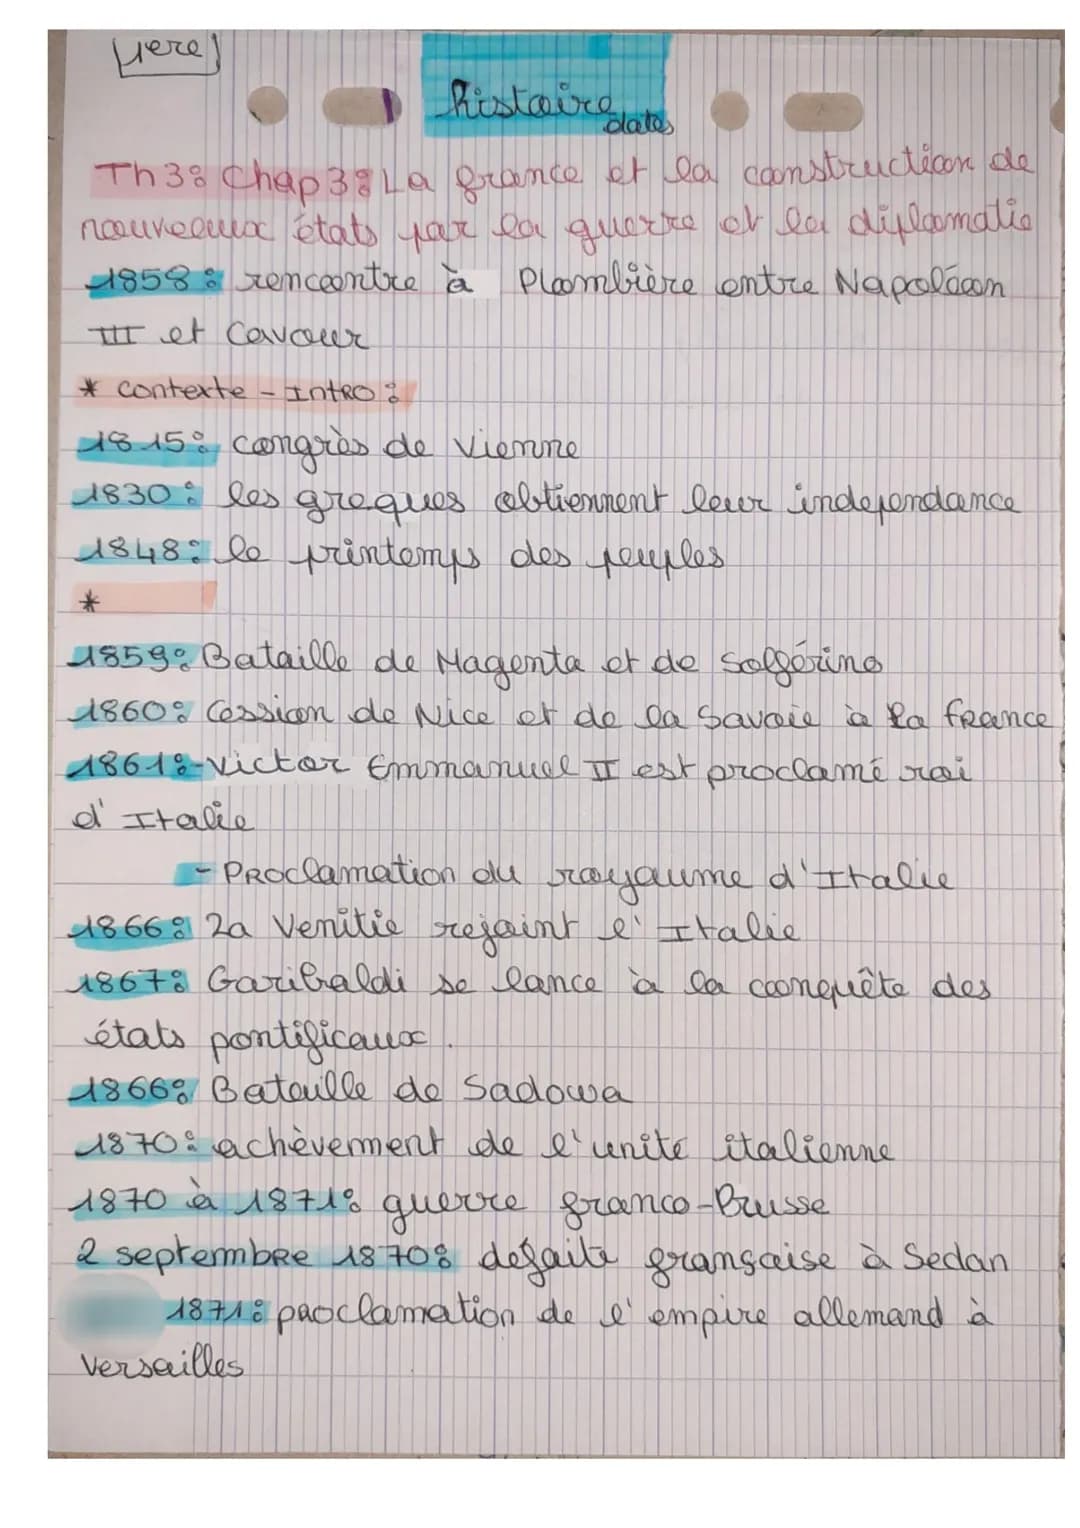 1ere
histoire
dates
Th3: Chap3: La france et la construction de
nouveaux états par la guerre et la diplomatie
1858: rencontre à Plombière entre Napoléon
III et Cavour
* contexte - Intro:
1815: congrès de Vienne
1830: les greques obtiennent leur independance
1848: le printemps des peuples
*
1859: Bataille de Magenta et de Solférino
1860: Cession de Nice et de la Savoie à la france
1861: - Victor Emmanuel II est proclamé roi
d'Italie
- Proclamation du royaume d'Italie
1866: La Venitie rejoint l'Italie
1867: Garibaldi se lance à la conquête des
états pontificaux.
1866: Bataille de Sadowa
1870: achèvement de l'unité italienne
1870 à 1871: guerre franco-Prusse
2 septembre 1870: defaite française à Sedan
1871: proclamation de l'empire allemand à
Versailles